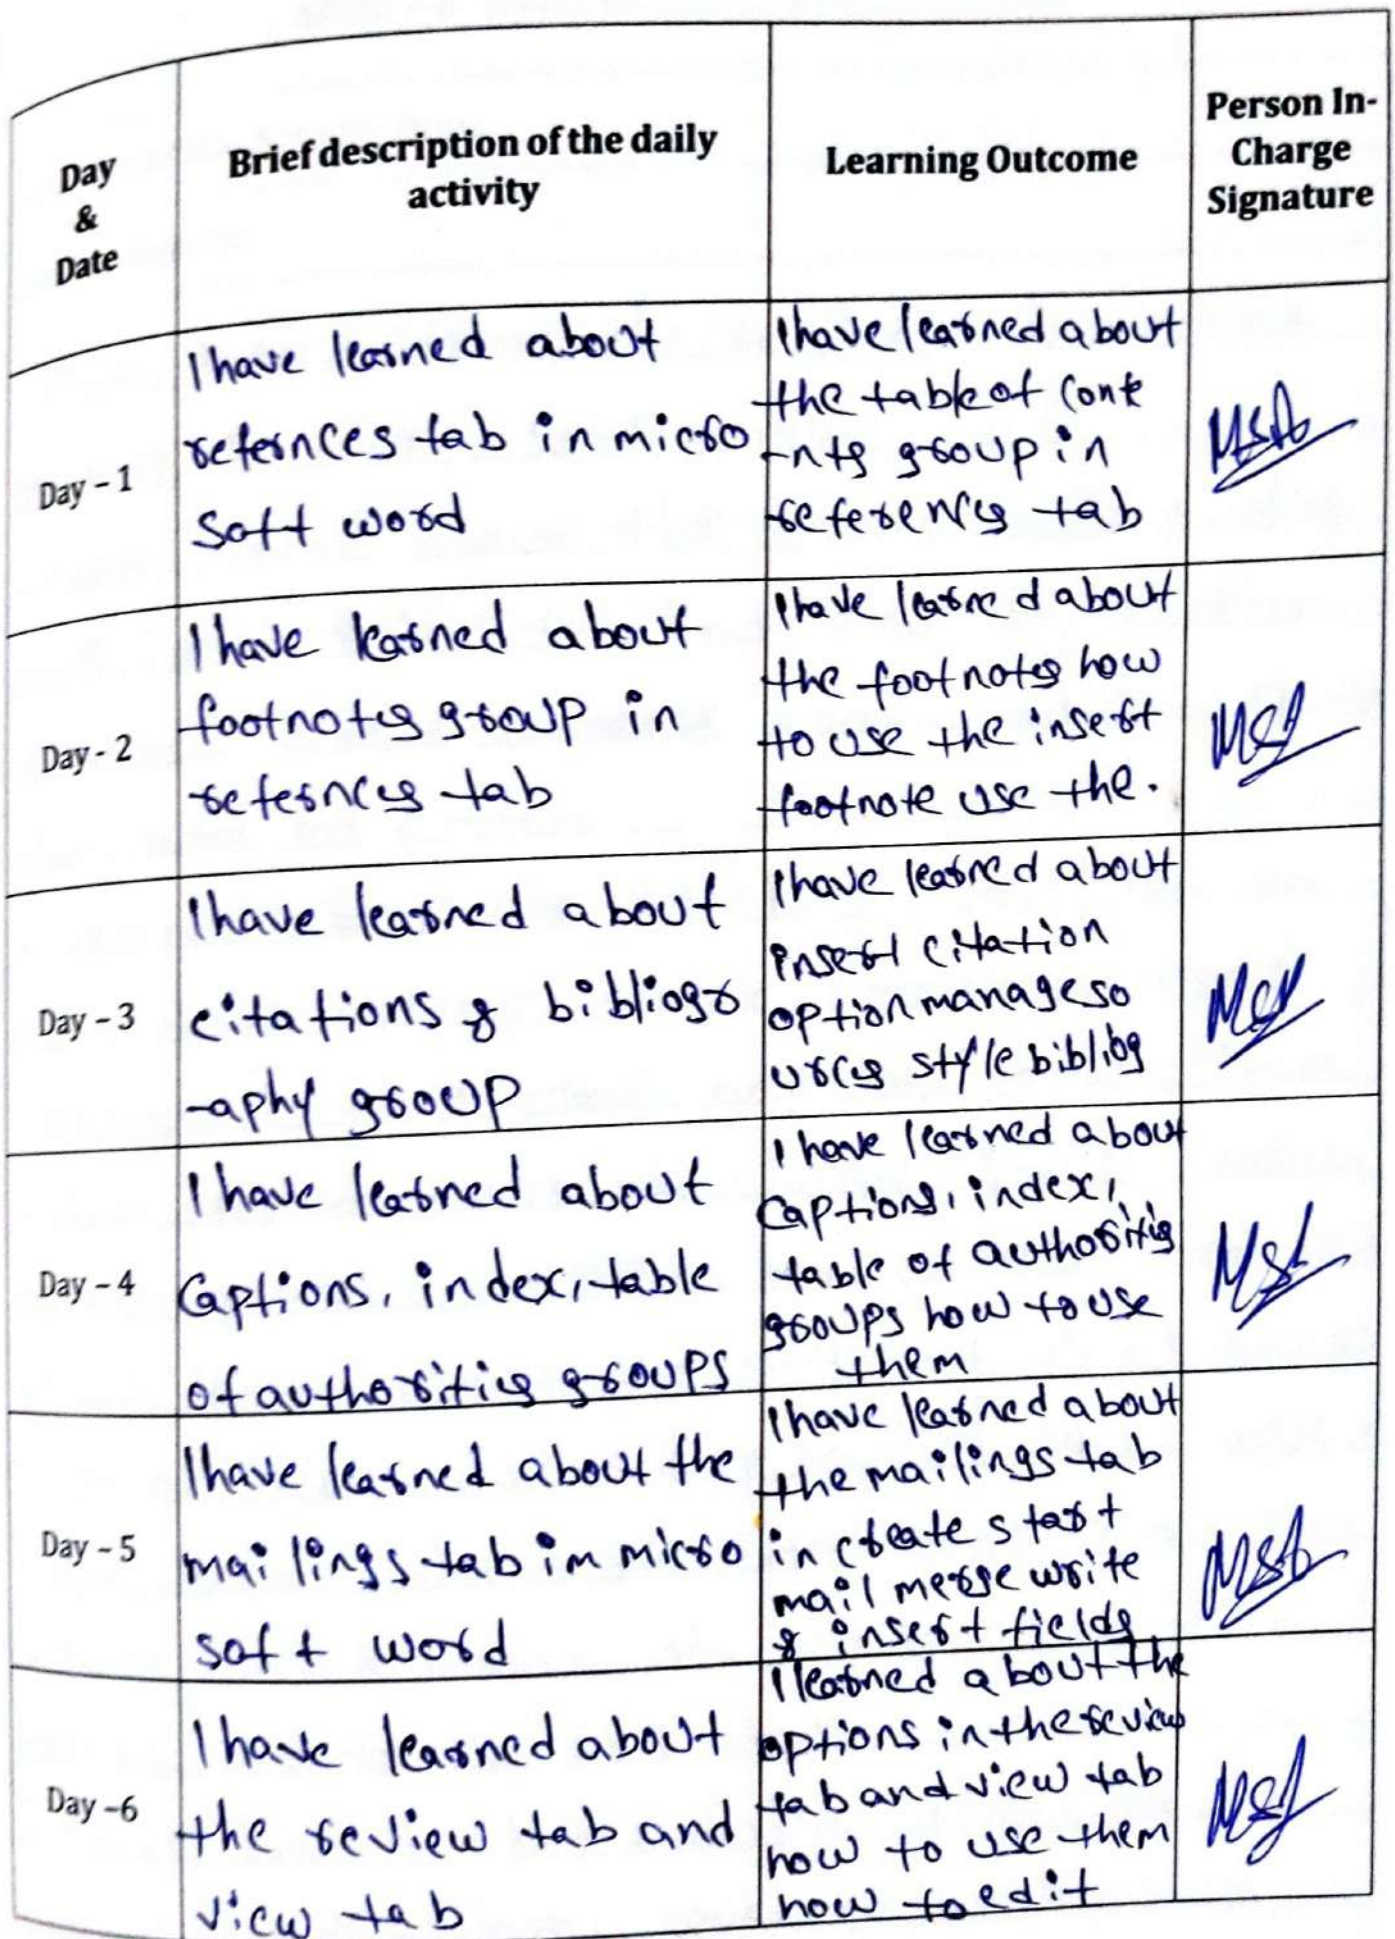 Day
&
Date
Brief description of the daily
activity
Learning Outcome
Person In-
Charge
Signature
Day - 1
I have learned about
refernces tab in micro
soft word
I have learned about
the table of conte
-nts group in
references tab
Day - 2
I have learned about
footnotes group in
refernces tab
I have learned about
the footnotes how
to use the insert
footnote use the.
Day - 3
I have learned about
citations & bibliogr
-aphy group
I have learned about
insert citation
option manage so
urces style bibliog
Day - 4
I have learned about
Captions, index, table
of authorities groups
I have learned about
Captions, index,
table of authorities
groups how to use
them
Day - 5
I have learned about the
mailings tab in micro
soft word
I have learned about
the mailings tab
in create start
mail merge write
& insert fields
Day -6
I have learned about
the review tab and
view tab
I learned about the
options in the review
tab and view tab
how to use them
how to edit